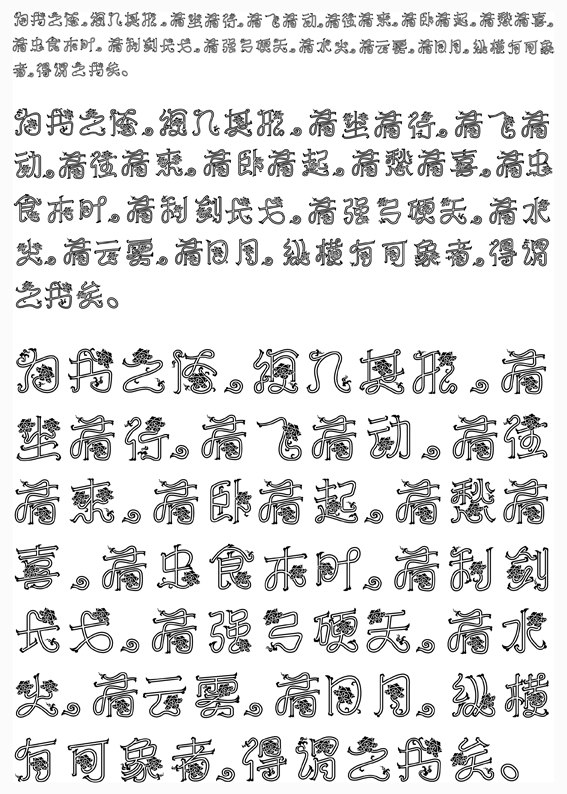 为书之体，须入其形，若坐若行，若飞若动，若往若来，若卧若起，若愁若喜，
若虫食木叶，若利剑长戈，若强弓硬矢，若水火，若云雾，若日月，纵横有可象
者，得谓之书矣。
为书之体，须入其形，若坐若行，若飞若
动，若往若来，若卧若起，若愁若喜，若虫
食木叶，若利剑长戈，若强弓硬矢，若水
火，若云雾，若日月，纵横有可象者，得谓
之书矣。
为书之体，须入其形，若
坐若行，若飞若动，若往
若来，若卧若起，若愁若
喜，若虫食木叶，若利剑
长戈，若强弓硬矢，若水
火，若云雾，若日月，纵横
有可象者，得谓之书矣。